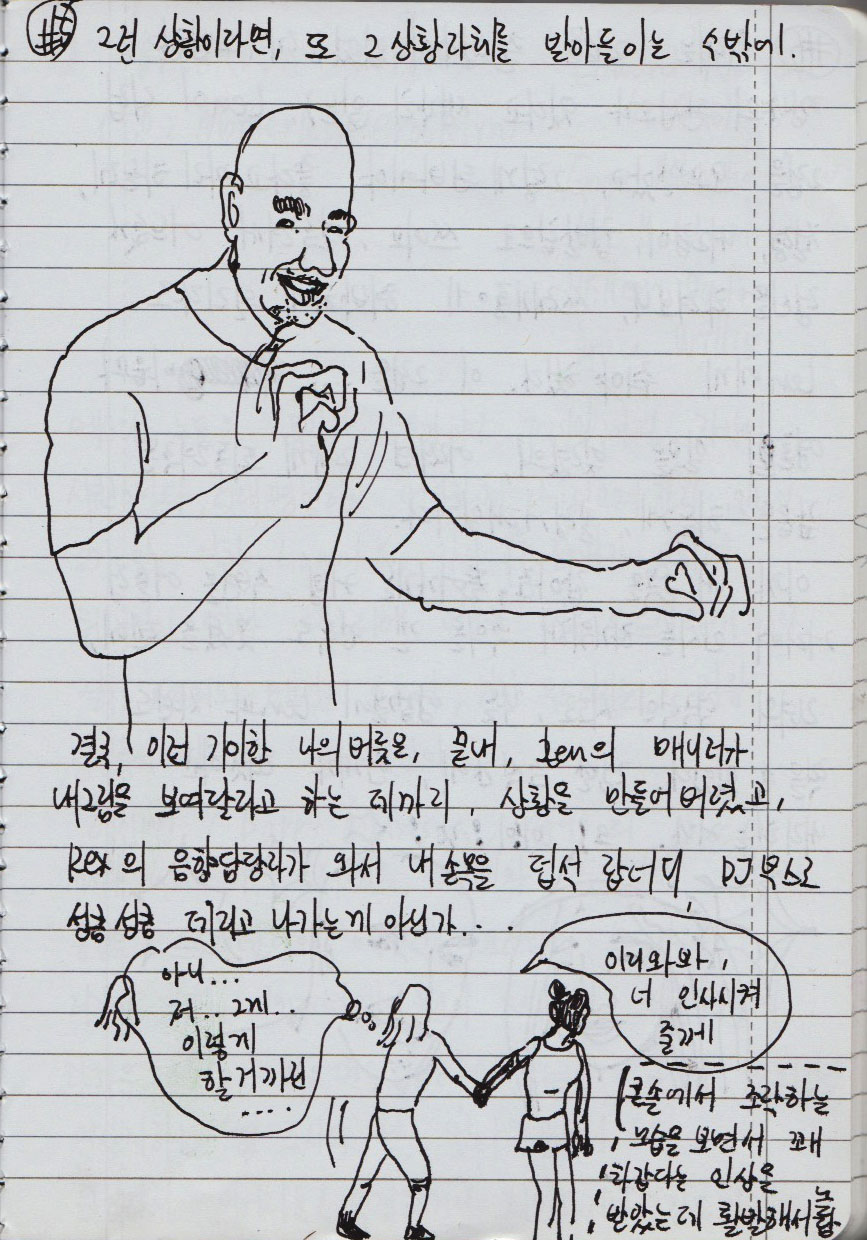 그런 상황이라면, 또 그 상황자체를 받아들이는 수밖에.
결국, 이런 기이한 나의 버릇은, 끝내, Zen의 매니저가
내그림을 보여달라고 하는 데까지, 상황을 만들어버렸고,
Rex의 음향담당자가 와서 내 손목을 덥석 잡더니 DJ부스로
성큼성큼 데리고 나가는게 아닌가...
아니...
저.. 그게..
이렇게
할거까진
....
이리와봐,
너 인사시켜
줄께
콘솔에서 조작하는
모습을 보면서 꽤
차갑다는 인상을
받았는데 활발해서 놀람